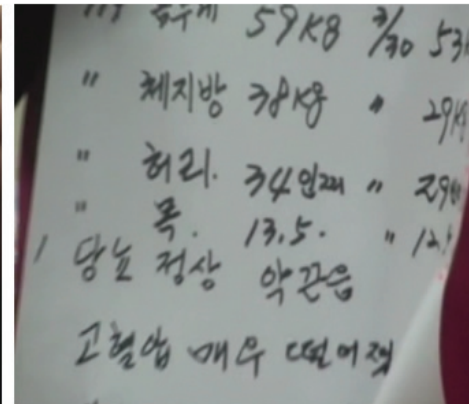 몸무게 59kg 3/30 53
" 체지방 38kg " 29k
" 허리. 34인찌 " 29
" 목. 13.5. " 12.
당뇨 정상 약끈음
고혈압 매우 떨어짐